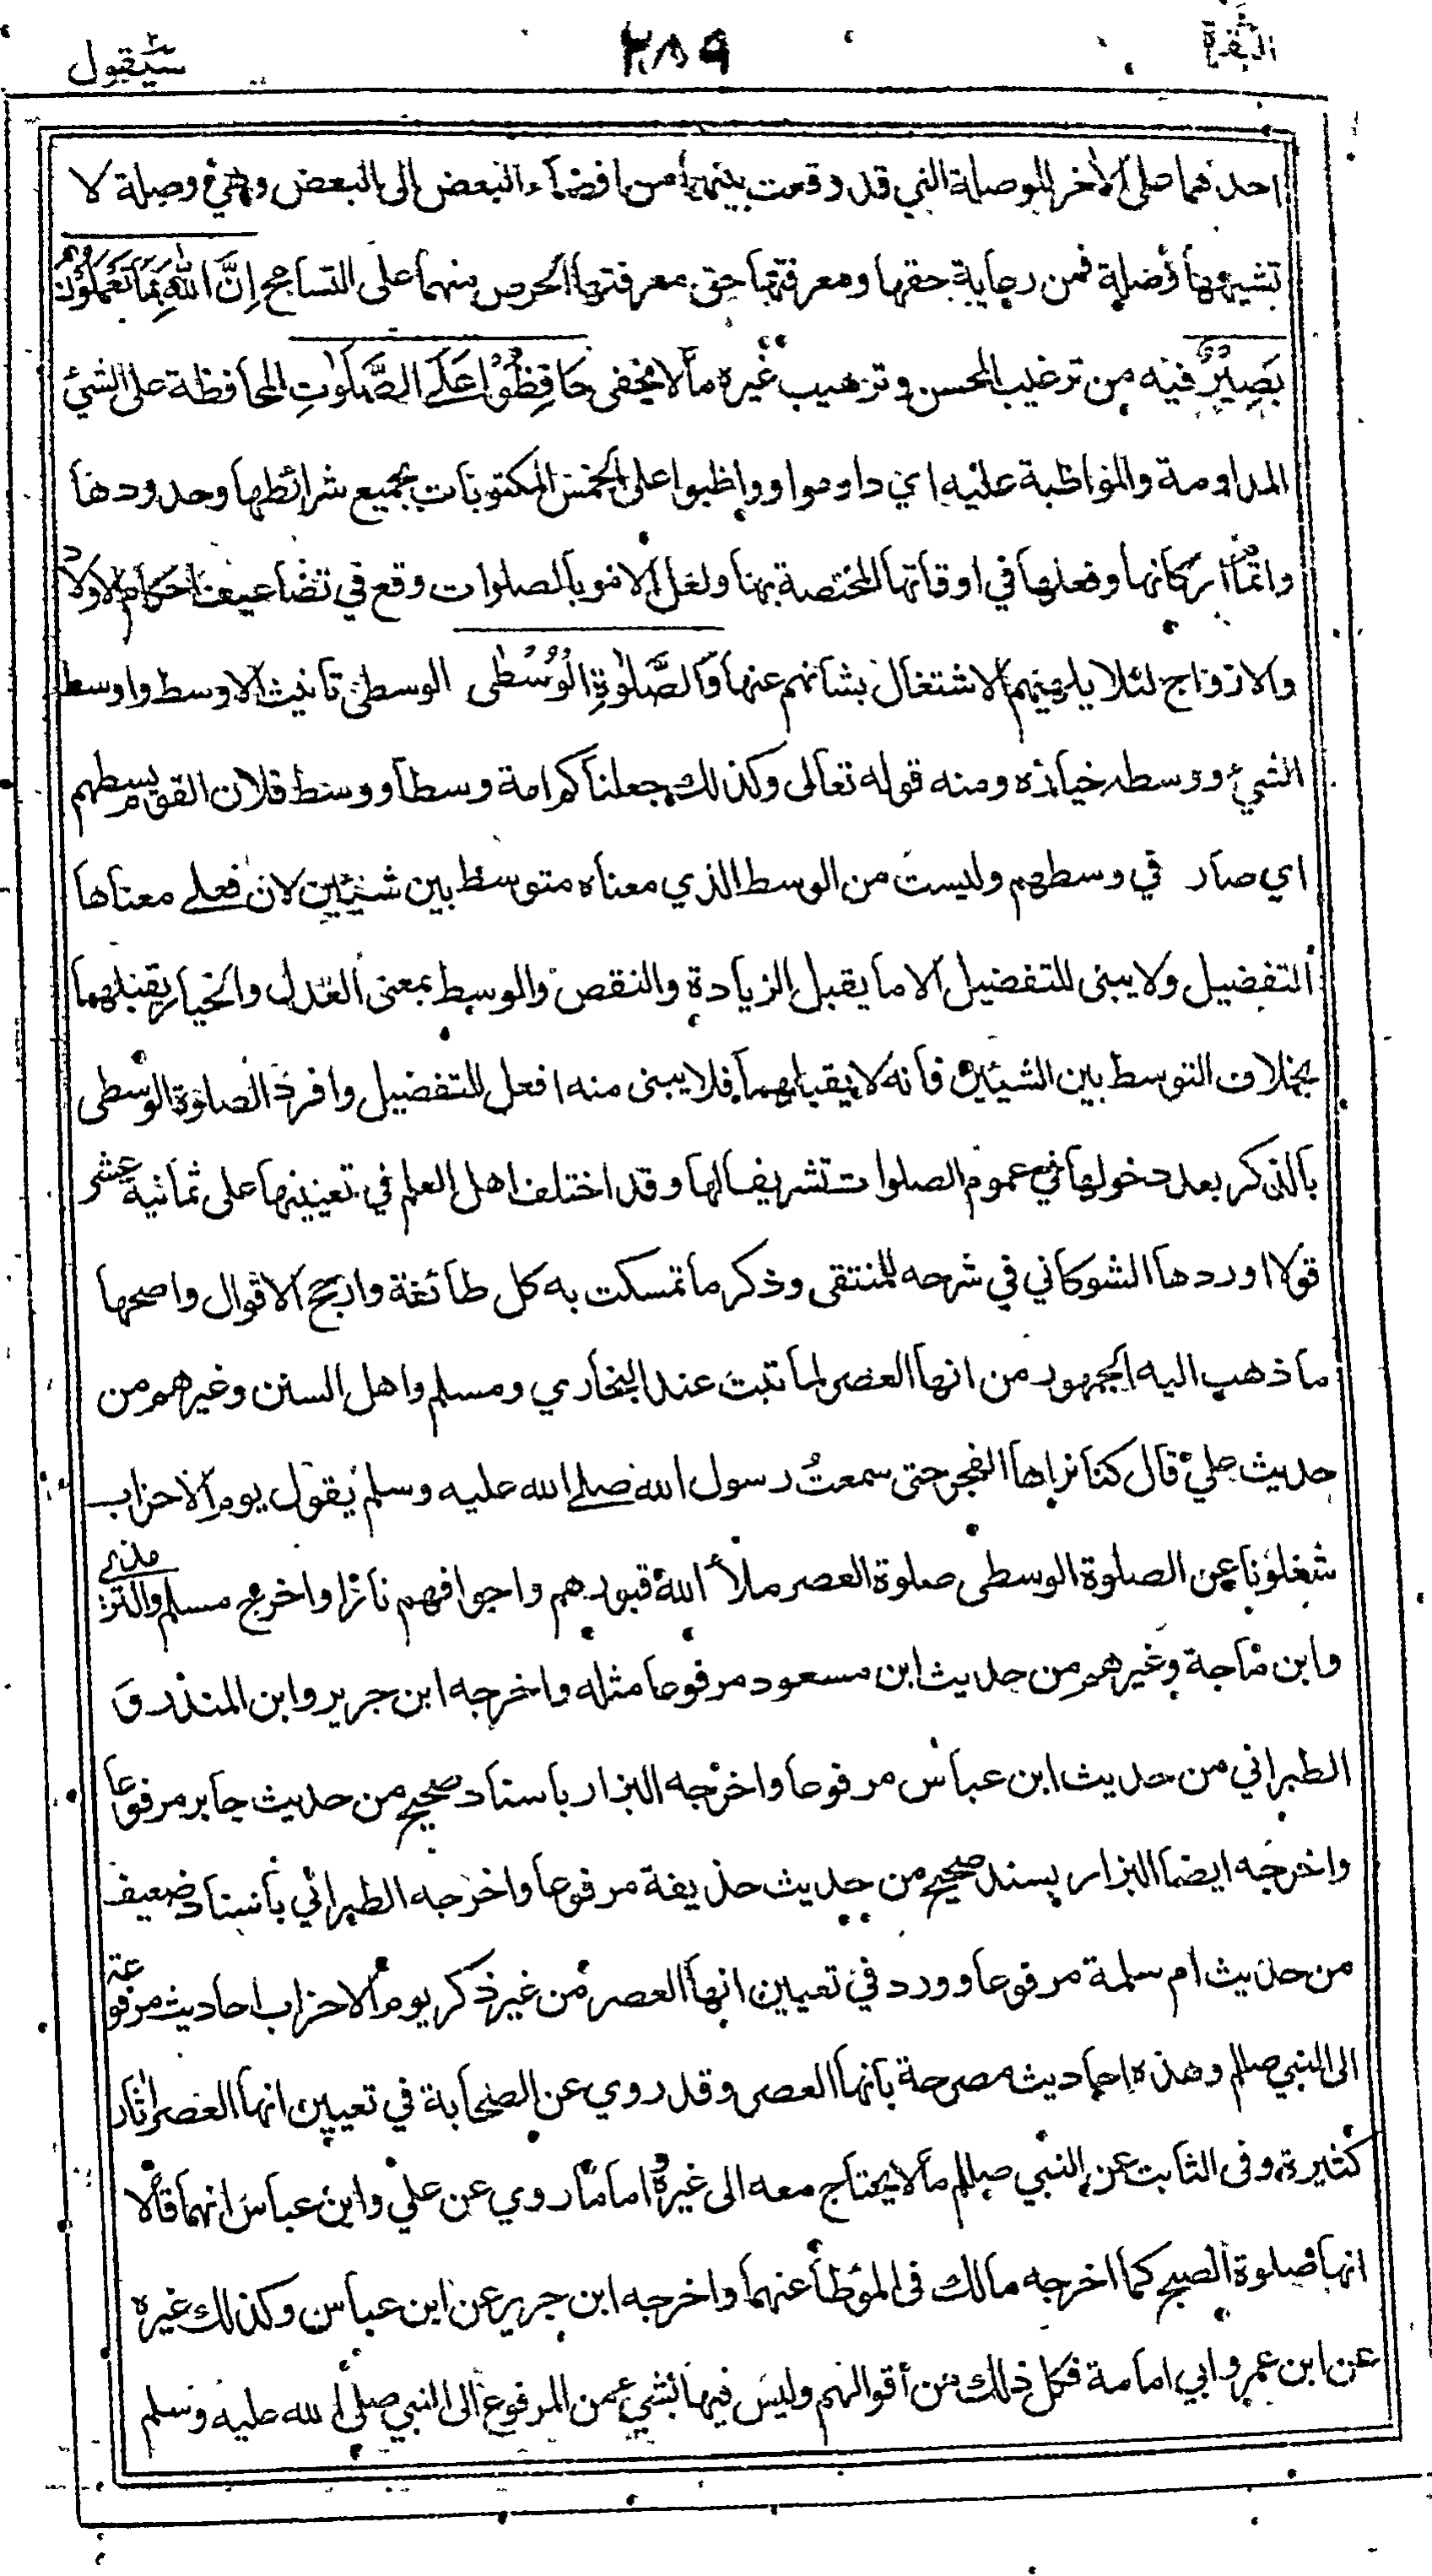 البقرة ٢٨٩ سيقول
احدهما على الاخر للوصلة التي قد وقعت بينهما من افضاء البعض الى البعض وهي وصلة لا
تشبهها وصلة فمن رعاية حقها ومعرفتها حق معرفتها الحرص منهما على التسامح اِنَّ اللّٰهَ بِمَا تَعْمَلُوْنَ
بَصِيْرٌ فيه من ترغيب المحسن وترهيب غيره ما لا يخفى حَافِظُوْا عَلَى الصَّلَوٰتِ المحافظة على الشيء
المداومة والمواظبة عليه اي داوموا وواظبوا على الخمس المكتوبات بجميع شرائطها وحدودها
واتمام اركانها وفعلها في اوقاتها المختصة بها ولعل الامر بالصلوات وقع في تضاعيف احكام الاولاد
والازواج لئلا يلهيهم الاشتغال بشانهم عنها وَالصَّلٰوةِ الْوُسْطٰى الوسطى تانيث الاوسط واوسط
الشيء ووسطه خياره ومنه قوله تعالى وكذلك جعلناكم امة وسطا ووسط فلان القوم يسطهم
اي صار في وسطهم وليست من الوسط الذي معناه متوسط بين شيئين لان فعلى معناها
التفضيل ولا يبنى للتفضيل الا ما يقبل الزيادة والنقص والوسط بمعنى العدل والخيار يقبلهما
بخلاف التوسط بين الشيئين فانه لا يقبلهما فلا يبنى منه افعل للتفضيل وافرد الصلوة الوسطى
بالذكر بعد دخولها في عموم الصلوات تشريفا لها وقد اختلف اهل العلم في تعيينها على ثمانية عشر
قولا اوردها الشوكاني في شرحه للمنتقى وذكر ما تمسكت به كل طائفة وارجح الاقوال واصحها
ما ذهب اليه الجمهور من انها العصر لما ثبت عند البخاري ومسلم واهل السنن وغيرهم من
حديث علي قال كنا نراها الفجر حتى سمعتُ رسول الله صلى الله عليه وسلم يقول يوم الاحزاب
شغلونا عن الصلوة الوسطى صلوة العصر ملأ الله قبورهم واجوافهم نارا واخرج مسلم والترمذي
وابن ماجة وغيرهم من حديث ابن مسعود مرفوعا مثله واخرجه ابن جرير وابن المنذر و
الطبراني من حديث ابن عباس مرفوعا واخرجه البزار باسناد صحيح من حديث جابر مرفوعا
واخرجه ايضا البزار بسند صحيح من حديث حذيفة مرفوعا واخرجه الطبراني باسناد ضعيف
من حديث ام سلمة مرفوعا وورد في تعيين انها العصر من غير ذكر يوم الاحزاب احاديث مرفوعة
الى النبي صللم وهذه احاديث مصرحة بانها العصر وقد روي عن الصحابة في تعيين انها العصر اثار
كثيرة وفى الثابت عن النبي صللم ما لا يحتاج معه الى غيره اما ما روي عن علي وابن عباس انهما قالا
انها صلوة الصبح كما اخرجه مالك فى المؤطأ عنهما واخرجه ابن جرير عن ابن عباس وكذلك غيره
عن ابن عمر وابي امامة فكل ذلك من أقوالهم وليس فيها شيء من المرفوع الى النبي صلى الله عليه وسلم